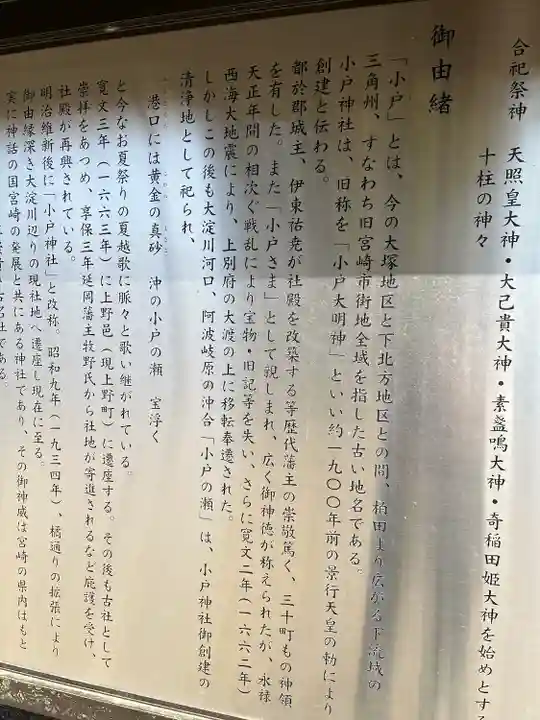 合祀祭神　天照皇大神・大己貴大神・素盞鳴大神・奇稲田姫大神を始めとする
十柱の神々
御由緒
「小戸」とは、今の大塚地区と下北方地区との間、柏田より広がる下流域の
三角州、すなわち旧宮崎市街地全域を指した古い地名である。
小戸神社は、旧称を「小戸大明神」といい約一九〇〇年前の景行天皇の勅により
創建と伝わる。
都於郡城主、伊東祐尭が社殿を改築する等歴代藩主の崇敬篤く、三十町もの神領
を有した。また「小戸さま」として親しまれ、広く御神徳が称えられたが、永禄
天正年間の相次ぐ戦乱により宝物・旧記等を失い、さらに寛文二年（一六六二年）
西海大地震により、上別府の大渡の上に移転奉遷された。
しかしこの後も大淀川河口、阿波岐原の沖合「小戸の瀬」は、小戸神社御創建の
清浄地として祀られ、
港口には黄金の真砂　沖の小戸の瀬　宝浮く
と今なお夏祭りの夏越歌に脈々と歌い継がれている。
寛文三年（一六六三年）に上野邑（現上野町）に遷座する。その後も古社として
崇拝をあつめ、享保三年延岡藩主牧野氏から社地が寄進されるなど庇護を受け、
社殿が再興されている。
明治維新後に「小戸神社」と改称。昭和九年（一九三四年）、橘通りの拡張により
御由縁深き大淀川辺りの現社地へ遷座し現在に至る。
実に神話の国宮崎の発展と共にある神社であり、その御神威は宮崎の県内はもと
古名社である。